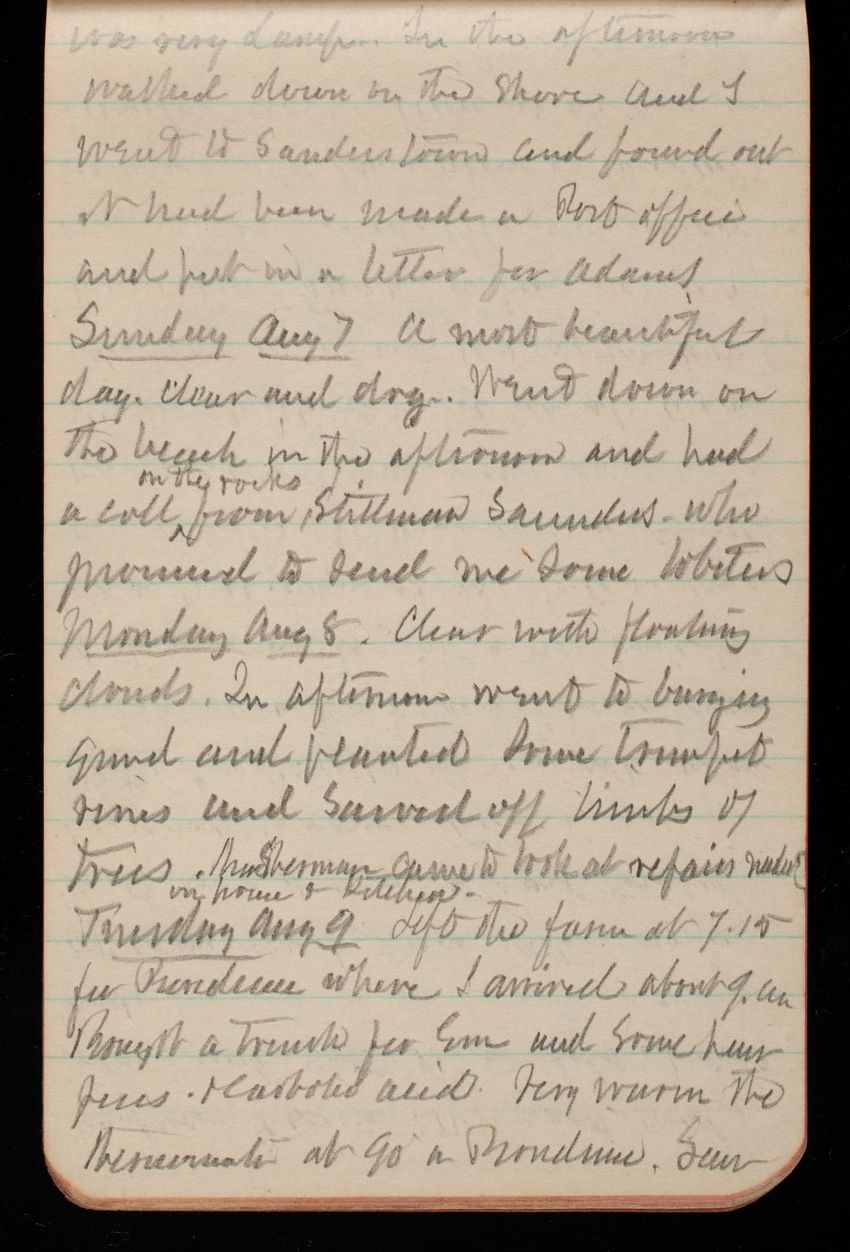 was very damp. In the afternoon
walked down on the shore and I
went to Saunderstown and found out
it had been made a Post office
and put in a letter for Adams
Sunday Aug 7 A most beautiful
day. clear and dry. Went down on
the beach in the afternoon and had
on the rocks
a call from Stillman Saunders. who
promised to send me some lobsters
Monday Aug 8. Clear with floating
clouds. In afternoon went to burying
grund and planted some trumpet
vines and sawed off limbs of
trees. Sherman came to look at repairs needed
on house & kitchen.
Tuesday Aug 9 Left the farm at 7.15
for Providence where I arrived about 9. am
Bought a trunk for Em and some hair
pins. & carbolic acid. Very warm the
thermometer at 90 in Providence. Saw